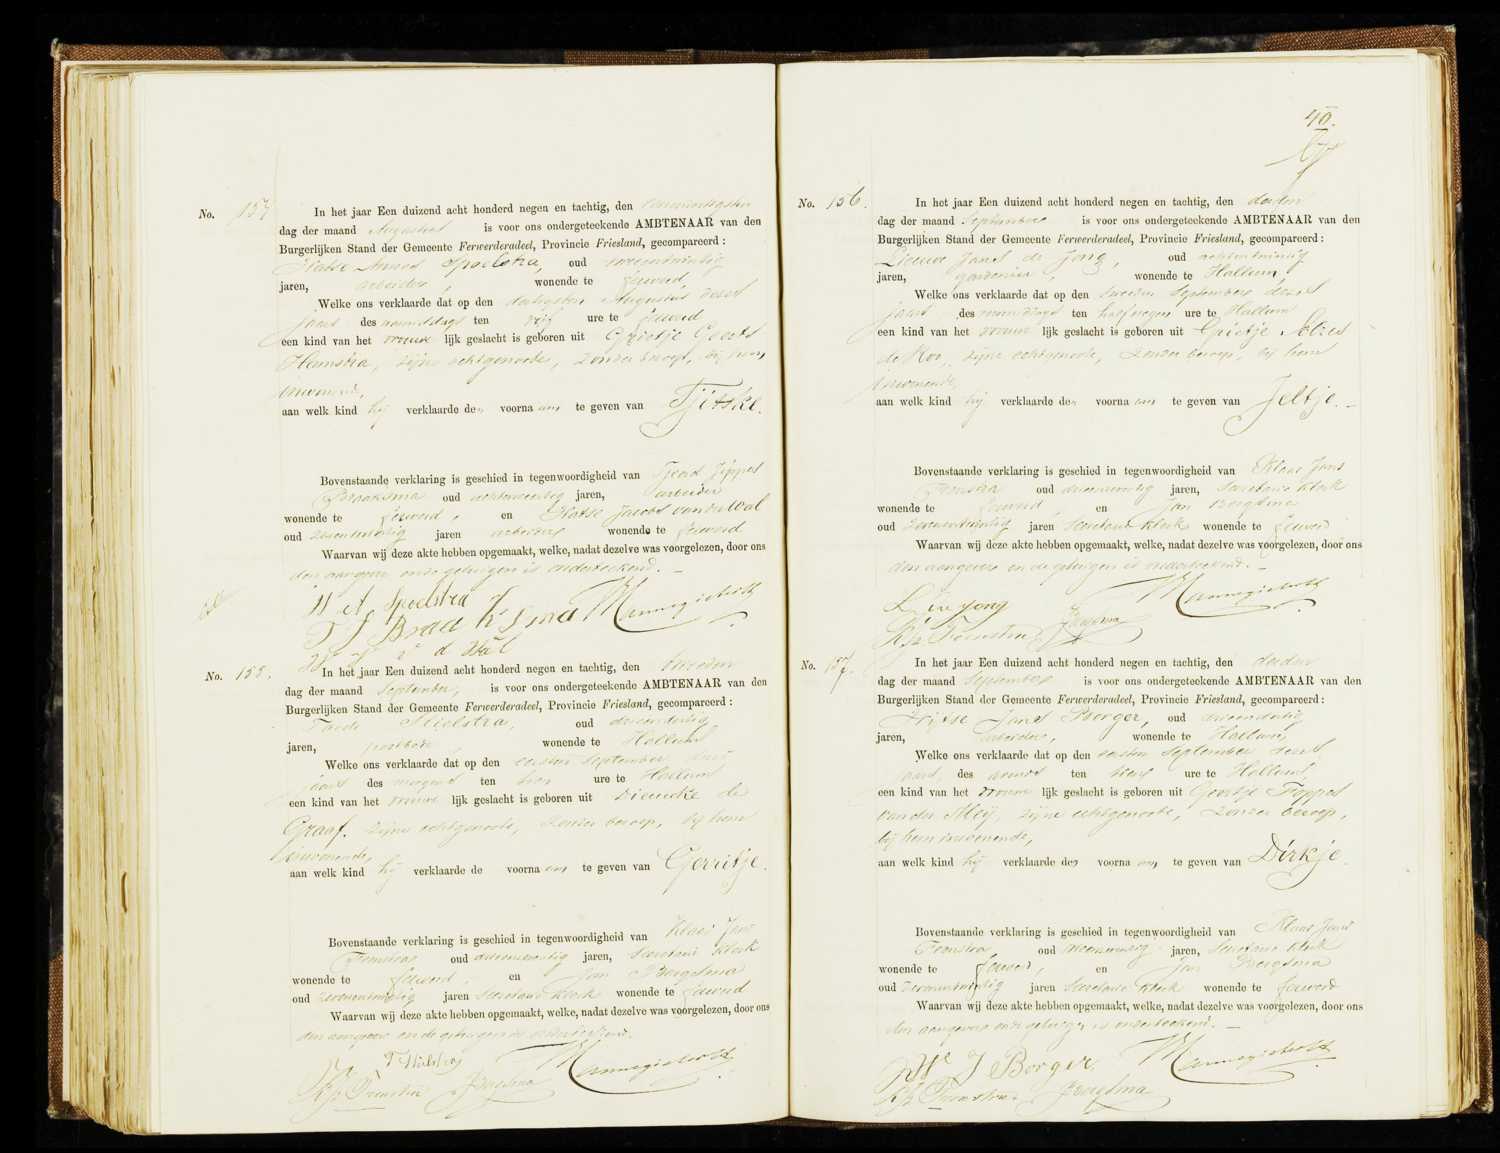 No. 154 In het jaar Een duizend acht honderd negen en tachtig, den
dag der maand Augustus is voor ons ondergeteekende AMBTENAAR van den
Burgerlijken Stand der Gemeente Ferwerderadeel, Provincie Friesland, gecompareerd:
Spoelstra, oud
jaren, arbeider, wonende te Ferwerd
Welke ons verklaarde dat op den Augustus dezes
jaars des namiddags ten vijf ure te Ferwerd
een kind van het vrouwelijk geslacht is geboren uit Grietje Geerts
Heemstra, zijne echtgenoote, zonder beroep, bij hem
inwonende,
aan welk kind hij verklaarde den voornaam te geven van Tjitske.
Bovenstaande verklaring is geschied in tegenwoordigheid van
Braaksma oud jaren, arbeider
wonende te Ferwerd, en Jacobs van der Wal
oud jaren arbeider wonende te Ferwerd
Waarvan wij deze akte hebben opgemaakt, welke, nadat dezelve was voorgelezen, door ons
den aangever en de getuigen is onderteekend. —
H A Spoelstra
T J Braaksma
v d Wal
No. 155. In het jaar Een duizend acht honderd negen en tachtig, den tweeden
dag der maand September, is voor ons ondergeteekende AMBTENAAR van den
Burgerlijken Stand der Gemeente Ferwerderadeel, Provincie Friesland, gecompareerd:
oud
jaren, postbode, wonende te Hallum
Welke ons verklaarde dat op den eersten September dezes
jaars des morgens ten ure te Hallum
een kind van het vrouwelijk geslacht is geboren uit Dieuwke de
Graaf, zijne echtgenoote, zonder beroep, bij hem
inwonende,
aan welk kind hij verklaarde den voornaam te geven van Gerritje.
Bovenstaande verklaring is geschied in tegenwoordigheid van Klaas Jans
Feenstra oud jaren, Secretarie klerk
wonende te Ferwerd, en Jan Bergsma
oud jaren Secretarie klerk wonende te Ferwerd
Waarvan wij deze akte hebben opgemaakt, welke, nadat dezelve was voorgelezen, door ons
den aangever en de getuigen is onderteekend.
Kjs Feenstra JBergsma
40.
No. 156. In het jaar Een duizend acht honderd negen en tachtig, den derden
dag der maand September is voor ons ondergeteekende AMBTENAAR van den
Burgerlijken Stand der Gemeente Ferwerderadeel, Provincie Friesland, gecompareerd:
Lieuwe Jans de Jong, oud achtentwintig
jaren, gardenier, wonende te Hallum,
Welke ons verklaarde dat op den tweeden September dezes
jaars, des namiddags ten half negen ure te Hallum
een kind van het vrouwelijk geslacht is geboren uit Grietje
zijne echtgenoote, zonder beroep, bij hem
inwonende,
aan welk kind hij verklaarde den voornaam te geven van Jeltje. —
Bovenstaande verklaring is geschied in tegenwoordigheid van Klaas Jans
Feenstra oud jaren, Secretarie klerk
wonende te Ferwerd, en Jan Bergsma
oud jaren Secretarie klerk wonende te Ferwerd
Waarvan wij deze akte hebben opgemaakt, welke, nadat dezelve was voorgelezen, door ons
den aangever en de getuigen is onderteekend. —
L J de Jong
Kjs Feenstra JBergsma
No. 157. In het jaar Een duizend acht honderd negen en tachtig, den derden
dag der maand September is voor ons ondergeteekende AMBTENAAR van den
Burgerlijken Stand der Gemeente Ferwerderadeel, Provincie Friesland, gecompareerd:
Jans Borger, oud
jaren, arbeider, wonende te Hallum
Welke ons verklaarde dat op den eersten September dezes
jaars, des avonds ten ure te Hallum,
een kind van het vrouwelijk geslacht is geboren uit Geertje Foppes
van der Meij, zijne echtgenoote, zonder beroep,
bij hem inwonende,
aan welk kind hij verklaarde den voornaam te geven van Dirkje.
Bovenstaande verklaring is geschied in tegenwoordigheid van Klaas Jans
Feenstra, oud jaren, Secretarie klerk
wonende te Ferwerd, en Jan Bergsma
oud jaren Secretarie klerk wonende te Ferwerd
Waarvan wij deze akte hebben opgemaakt, welke, nadat dezelve was voorgelezen, door ons
den aangever en de getuigen is onderteekend. —
J Borger
Kjs Feenstra JBergsma